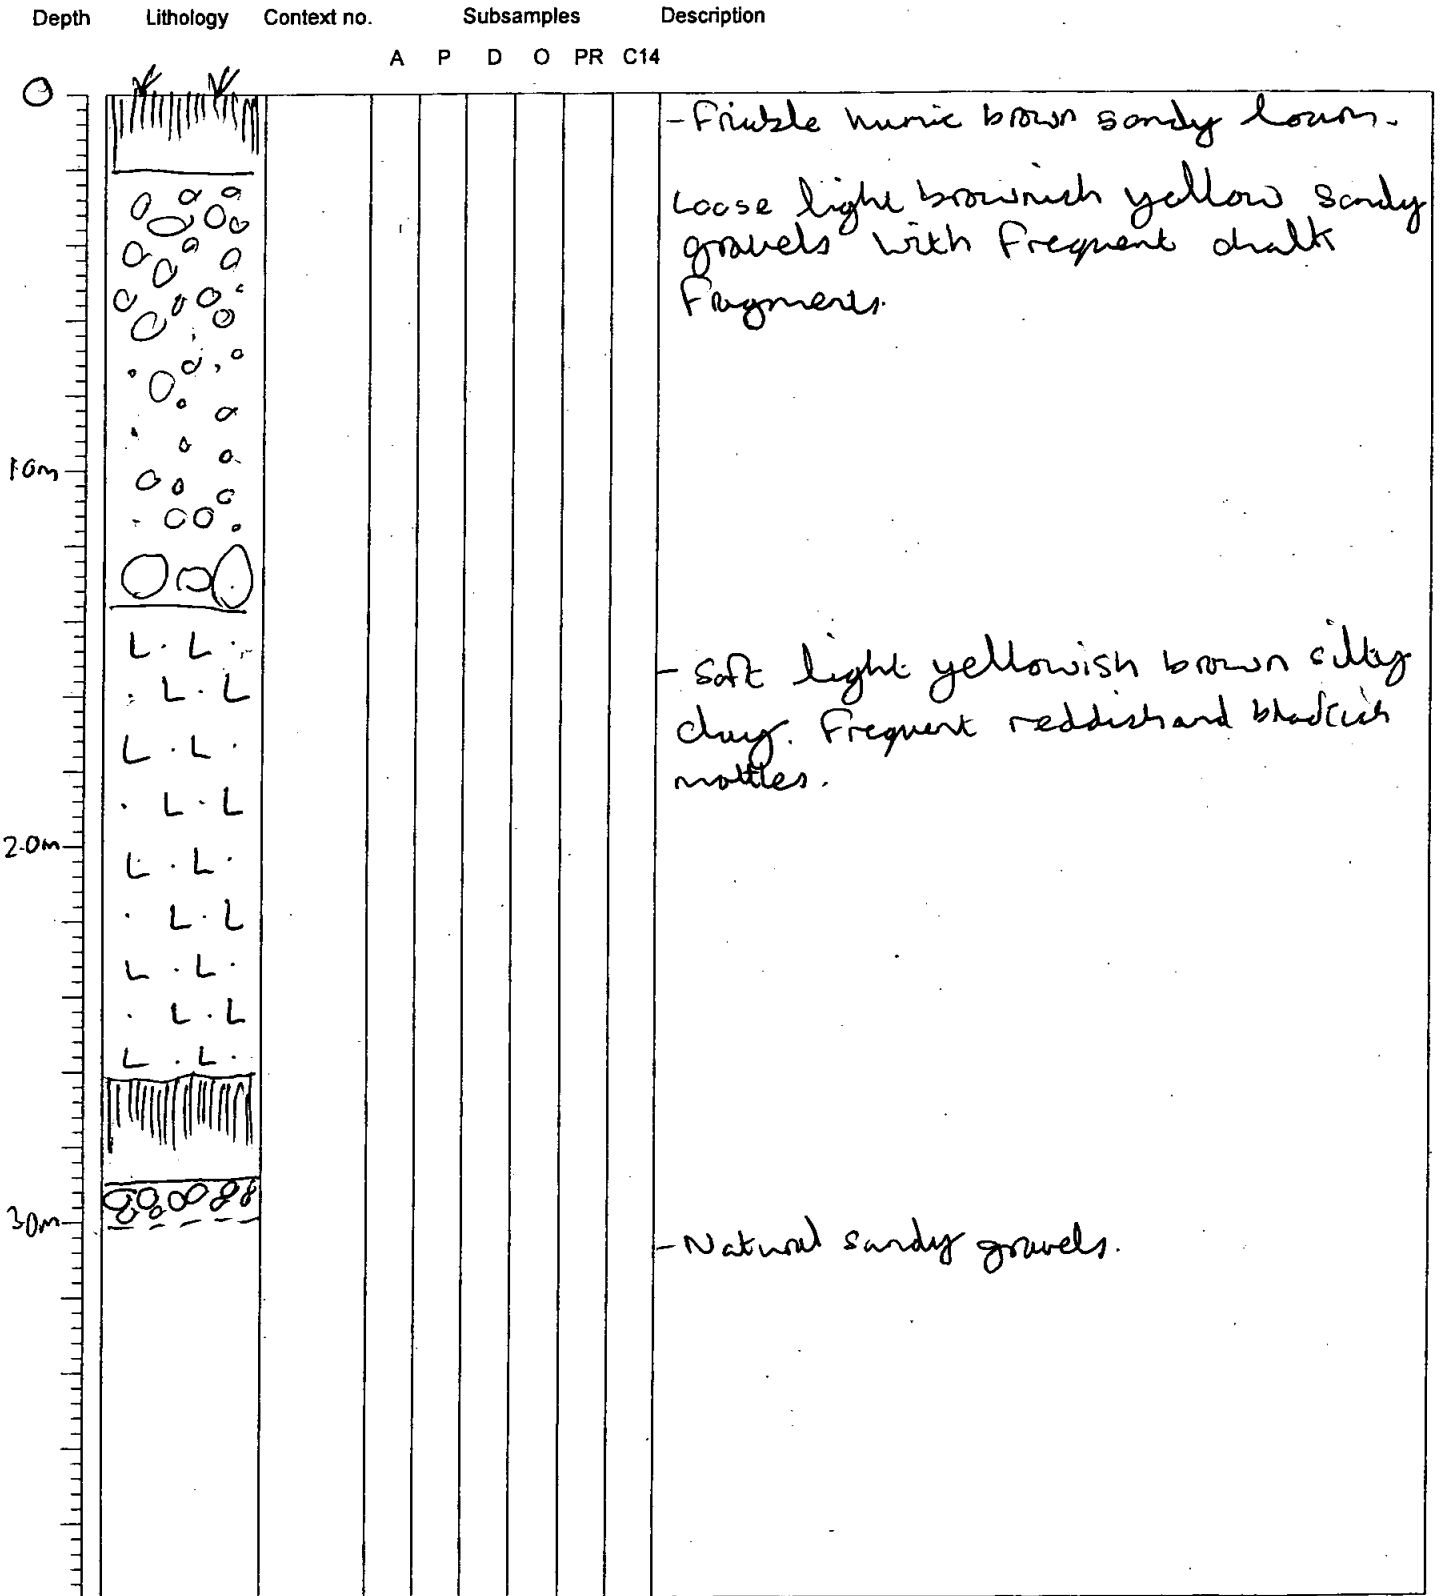 Depth Lithology Context no. Subsamples Description
A P D O PR C14
0
- Friable humic brown sandy loam.
Loose light brownish yellow sandy
gravels with frequent chalk
fragments.
1.0m
- Soft light yellowish brown silty
clay. Frequent reddish and blackish
mottles.
2.0m
3.0m
- Natural sandy gravels.